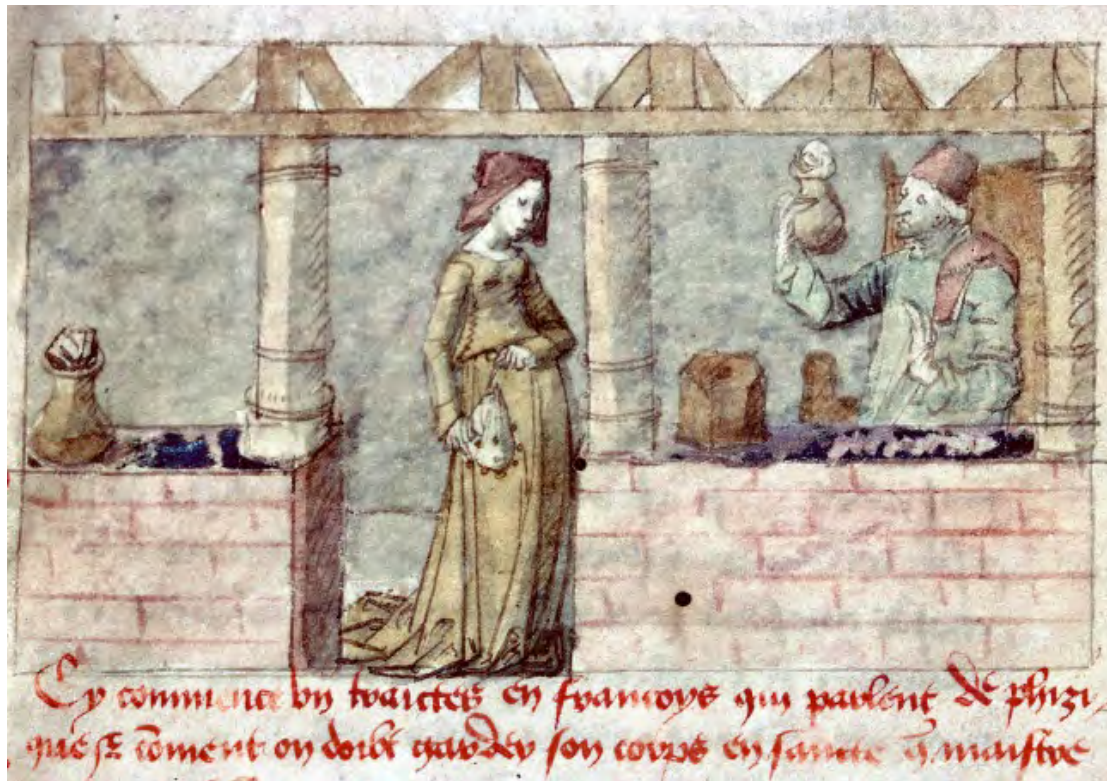 Cy commence un traictes en francoys qui parlent de phizi
que et coment on doibt garder son corps en sancte q maistre